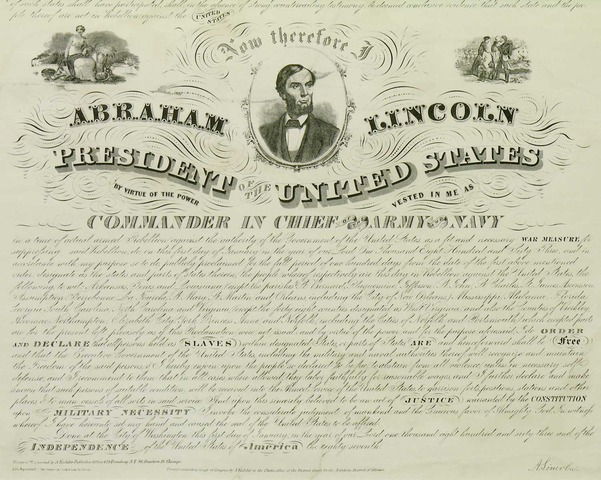 of such states shall have participated, shall in the absence of strong countervailing testimony, be deemed conclusive evidence that such state and the peo
ple thereof are not in Rebellion against the UNITED STATES
Now therefore I
ABRAHAM LINCOLN
PRESIDENT OF THE UNITED STATES
BY VIRTUE OF THE POWER VESTED IN ME AS
COMMANDER IN CHIEF OF THE ARMY AND NAVY
in a time of actual armed Rebellion against the authority of the Government of the United States as a fit and necessary WAR MEASURE for
suppressing said Rebellion, do on this first day of January in the year of our Lord One Thousand Eight Hundred and Sixty Three, and in
order designate as the states and parts of States wherein the people whereof respectively are this day in Rebellion against the United States, the
following to wit: Arkansas, Texas and Louisiana except the parishes
Assumption, Terrebonne, La Fourche, St. Mary, St. Martin and Orleans including the City of New Orleans, Mississippi, Alabama, Florida,
Georgia, South Carolina, North Carolina and Virginia, except the forty eight counties designated as West Virginia, and also the counties of Berkley,
are for the present left precisely as if this Proclamation were not issued, and by virtue of the power and for the purpose aforesaid, I do ORDER
AND DECLARE that all persons held as SLAVES within designated States, or parts of States ARE and henceforward shall be Free
and that the Executive Government of the United States, including the military and naval authorities thereof will recognize and maintain
the Freedom of the said persons & I hereby enjoin upon the people so declared to be free to abstain from all violence, unless in necessary self
defence, and I recommend to them that in all cases when allowed they labor faithfully for reasonable wages, and I further declare and make
known that such persons of suitable condition will be received into the armed service of the United States, to garrison forts, positions, stations and other
places & to man vessels of all sorts in said service. And upon this sincerely believed to be an act of JUSTICE warranted by the CONSTITUTION
upon MILITARY NECESSITY I invoke the considerate judgment of mankind and the Gracious favor of Almighty God. In witness
whereof I have hereunto set my hand and caused the seal of the United States to be affixed.
Done at the City of Washington this first day of January, in the year of our Lord one thousand eight hundred and sixty three and of the
INDEPENDENCE of the United States of America the eighty seventh
A. Lincoln